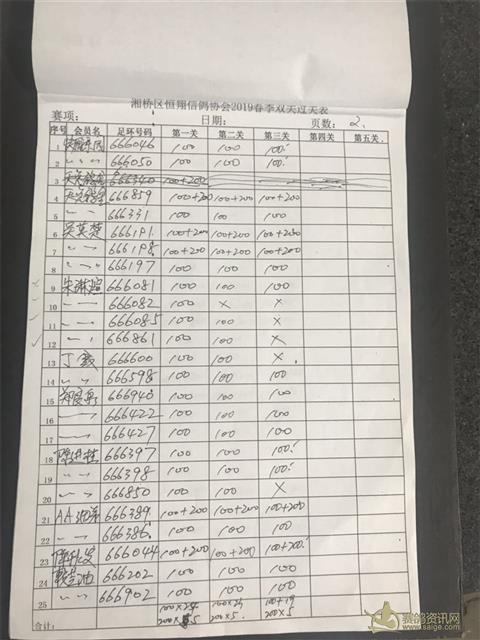 湘桥区恒翔信鸽协会2019春季双关过关表
赛项: 日期: 页数: 2.
序号 会员名 足环号码 第一关 第二关 第三关 第四关 第五关
1 666046 100 100 100
2 〃 〃 666050 100 100 100
3 666340 100+200
4 666859 100+200 100+200 100+200
5 〃 〃 666331 100 100 100
6 666191 100+200 100+200 100+200
7 〃 〃 666198 100+200 100+200 100+200
8 〃 〃 666197 100 100 100
9 666081 100 100 100
10 〃 〃 666082 100 × ×
11 〃 〃 666085 100 100 ×
12 〃 〃 666861 100 100 ×
13 丁 666600 100 100 ×
14 〃 〃 666598 100 100 100
15 666940 100 100 100
16 〃 〃 666422 100 100 100
17 〃 〃 666427 100 100 100
18 666397 100 100 100
19 〃 〃 666398 100 100 100
20 〃 〃 666850 100 100 ×
21 AA 666389 100+200 100+200 100+200
22 〃 〃 666386 100 100 100
23 666044 100+200 100+200 100+200
24 666202 100 100 100
25 〃 〃 666902 100 100 100
合计: 100×24 100×24 100+19
200×5 200×5. 200×5.
赛鸽资讯网
www.saige.com